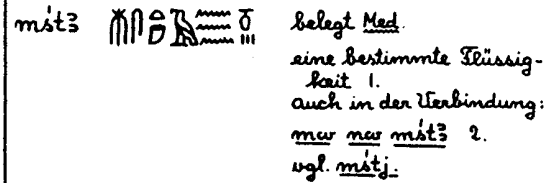 mśtꜣ 𓄟𓋴𓏏𓅡𓈗𓏊𓏥 belegt Med.
eine bestimmte Flüssig-
keit 1.
auch in der Verbindung:
mw nw mśtꜣ 2.
vgl. mśtj.